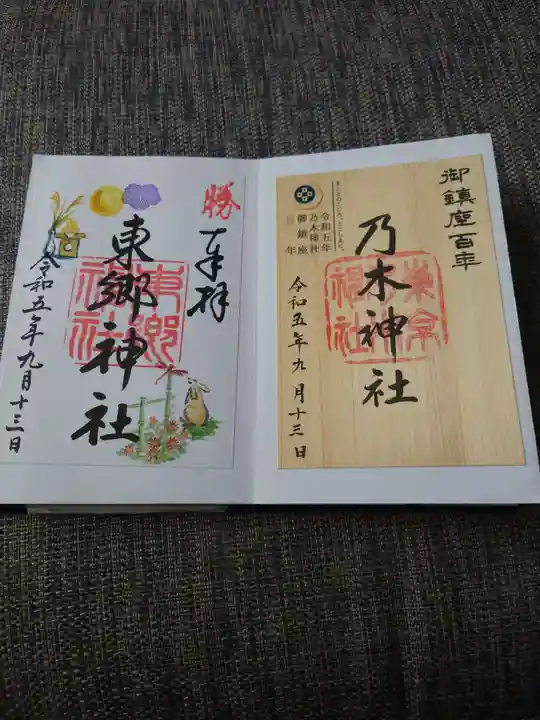 御鎮座百年
まことのこころ、とこしえに。
令和五年
乃木神社
御鎮座
百年
乃木神社
乃木神社
令和五年九月十三日
勝
奉拝
東郷神社
東郷神社
令和五年九月十三日